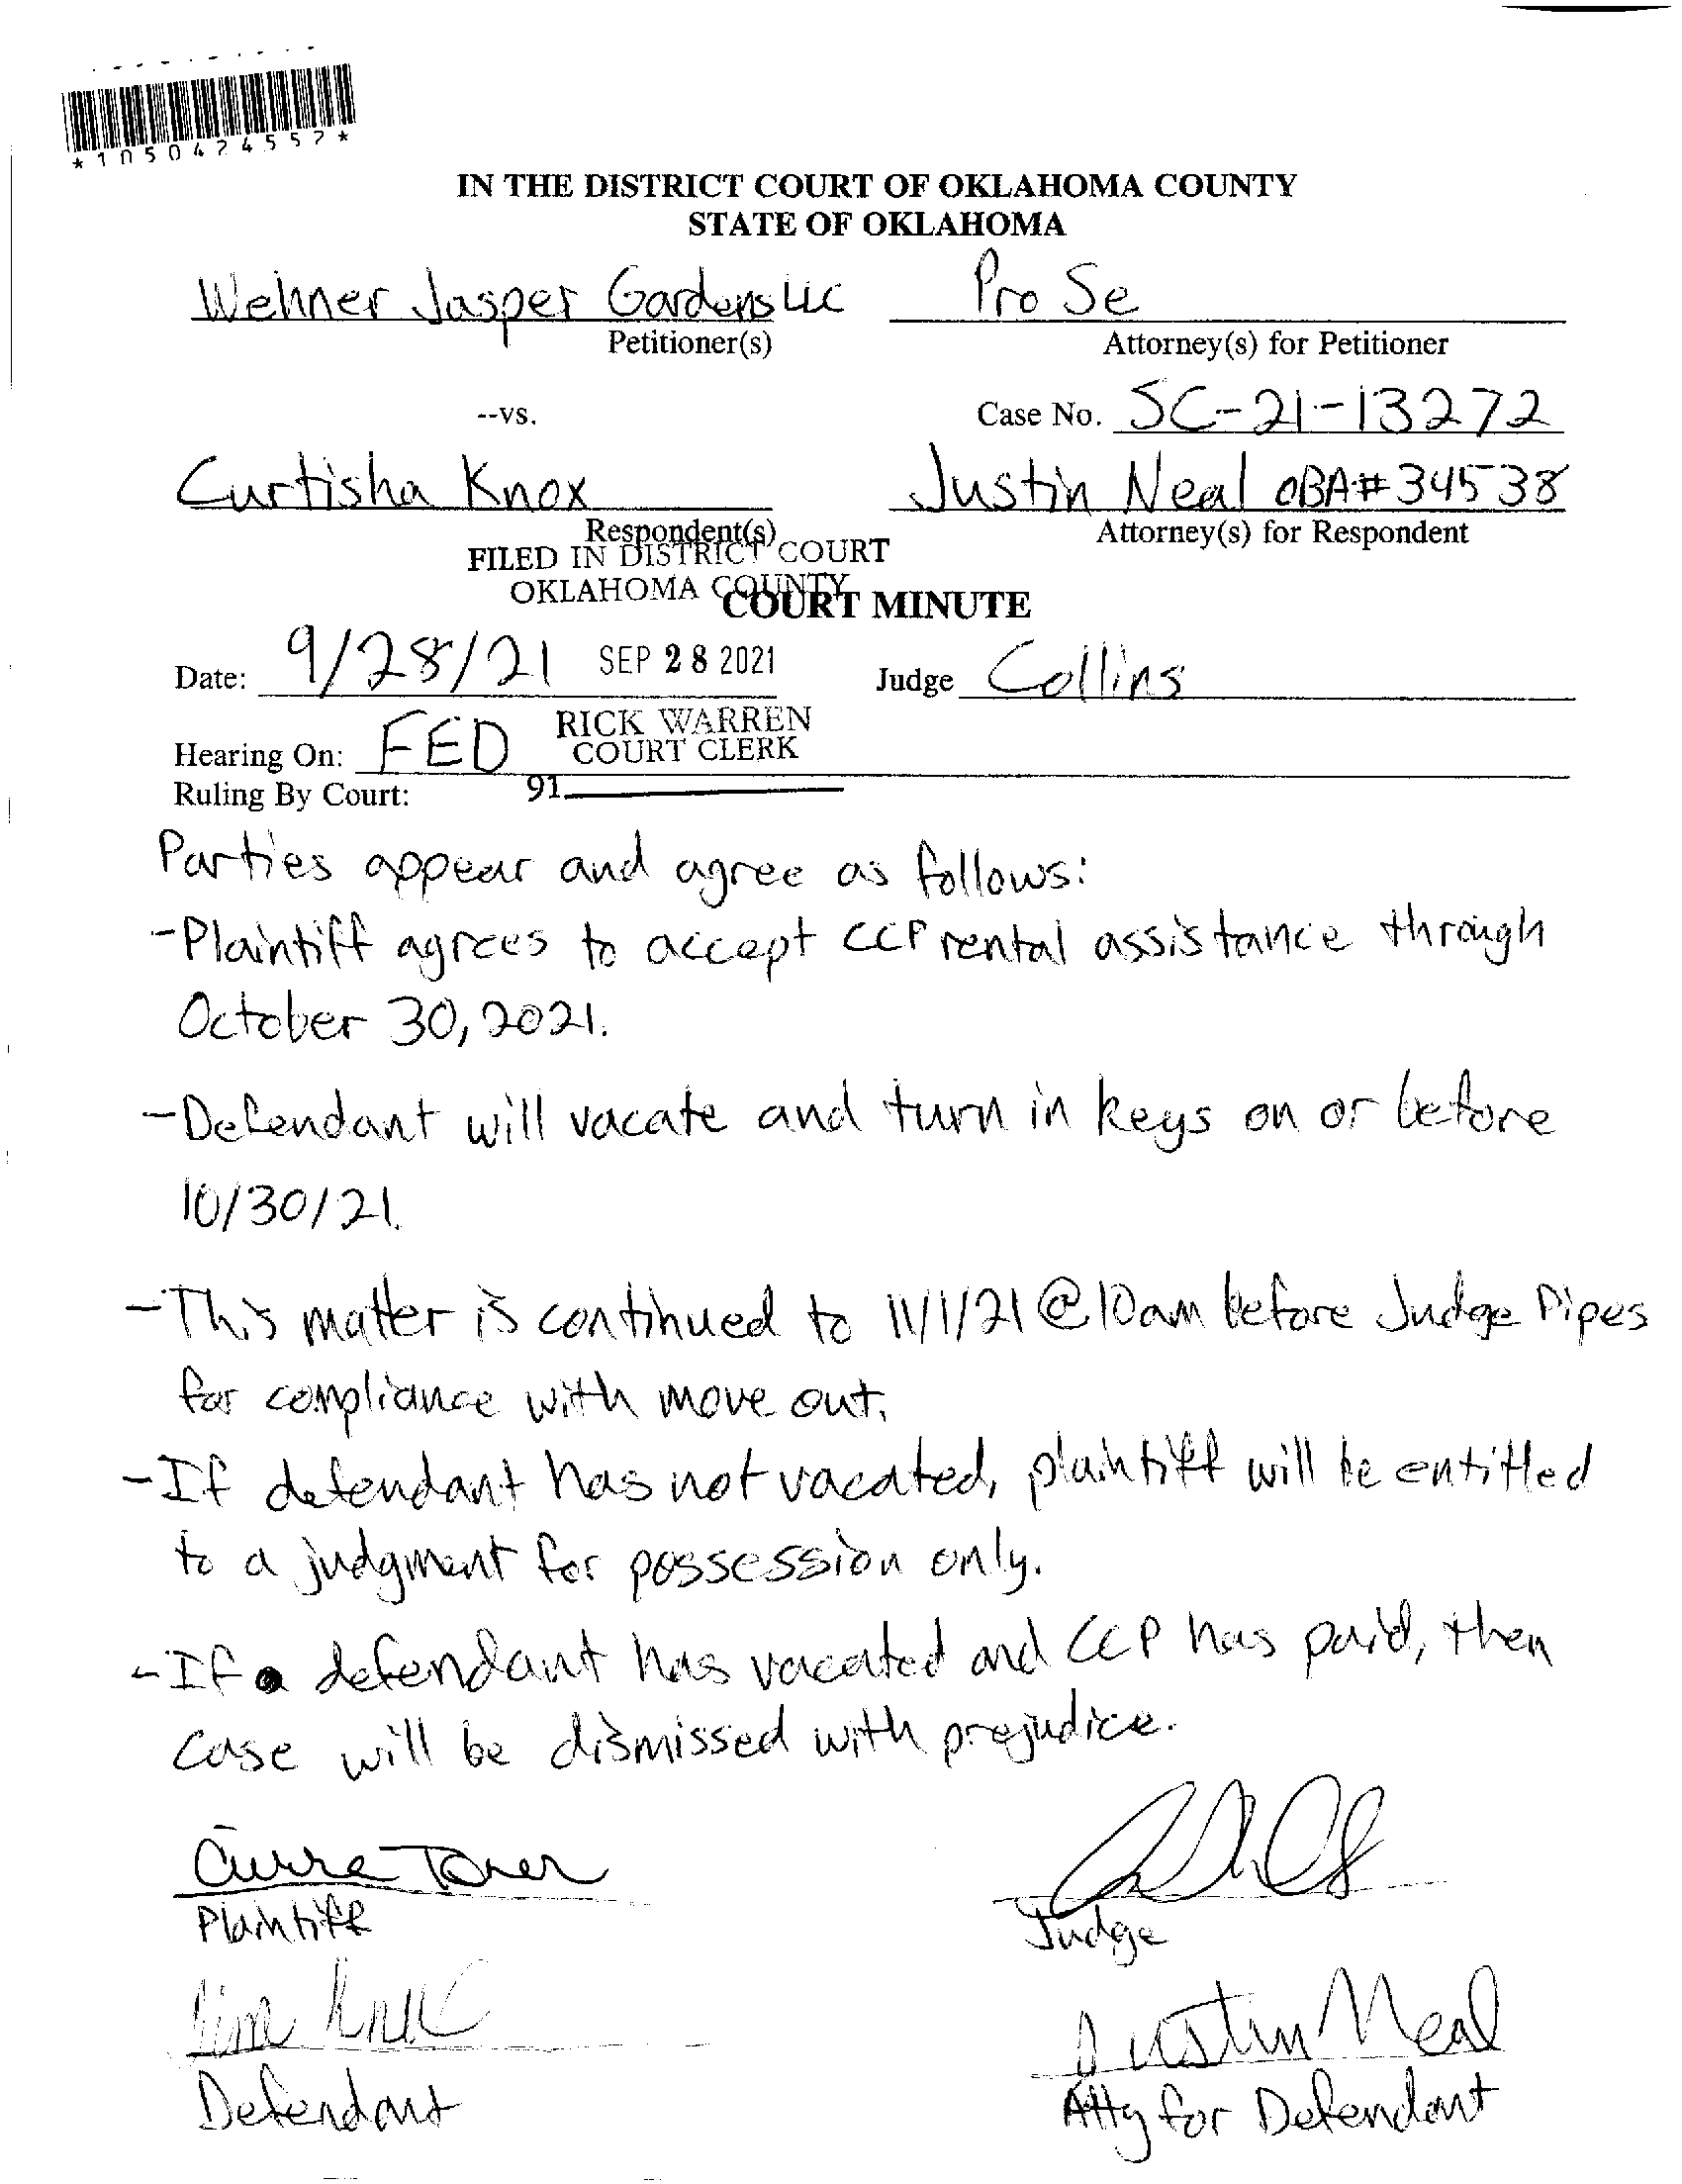 *1050424557*
IN THE DISTRICT COURT OF OKLAHOMA COUNTY
STATE OF OKLAHOMA
Wehner Jasper Gardens LLC Pro Se
Petitioner(s) Attorney(s) for Petitioner
--vs. Case No. SC-21-13272
Curtisha Knox Justin Neal OBA# 34538
Respondent(s) Attorney(s) for Respondent
FILED IN DISTRICT COURT
OKLAHOMA COUNTY
COURT MINUTE
Date: 9/28/21 SEP 28 2021 Judge Collins
RICK WARREN
Hearing On: FED COURT CLERK
Ruling By Court: 91
Parties appear and agree as follows:
-Plaintiff agrees to accept CCP rental assistance through
October 30, 2021.
-Defendant will vacate and turn in keys on or before
10/30/21.
-This matter is continued to 11/1/21 @ 10am before Judge Pipes
for compliance with move out.
-If defendant has not vacated, plaintiff will be entitled
to a judgment for possession only.
-If defendant has vacated and CCP has paid, then
case will be dismissed with prejudice.
Plaintiff
Judge
Justin Neal
Defendant
Atty for Defendant